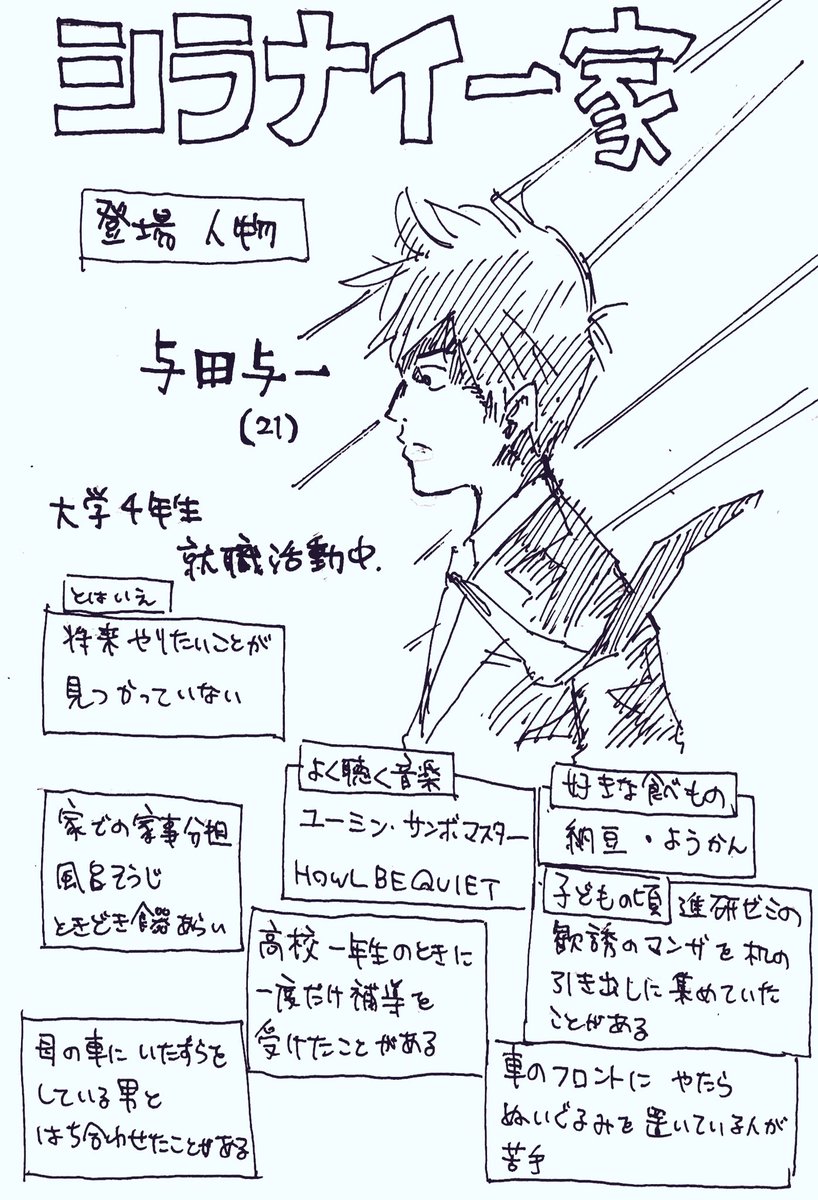 シラナイ一家
登場人物
与田与一
(21)
大学4年生
就職活動中.
とはいえ
将来やりたいことが
見つかっていない
よく聴く音楽
ユーミン・サンボマスター
HOWL BE QUIET
好きな食べもの
納豆・ようかん
家での家事分担
風呂そうじ
ときどき食器あらい
子どもの頃
進研ゼミの
歓誘のマンガを机の
引き出しに集めていた
ことがある
高校一年生のときに
一度だけ補導を
受けたことがある
母の車にいたずらを
している男と
はち合わせたことがある
車のフロントにやたら
ぬいぐるみを置いている人が
苦手